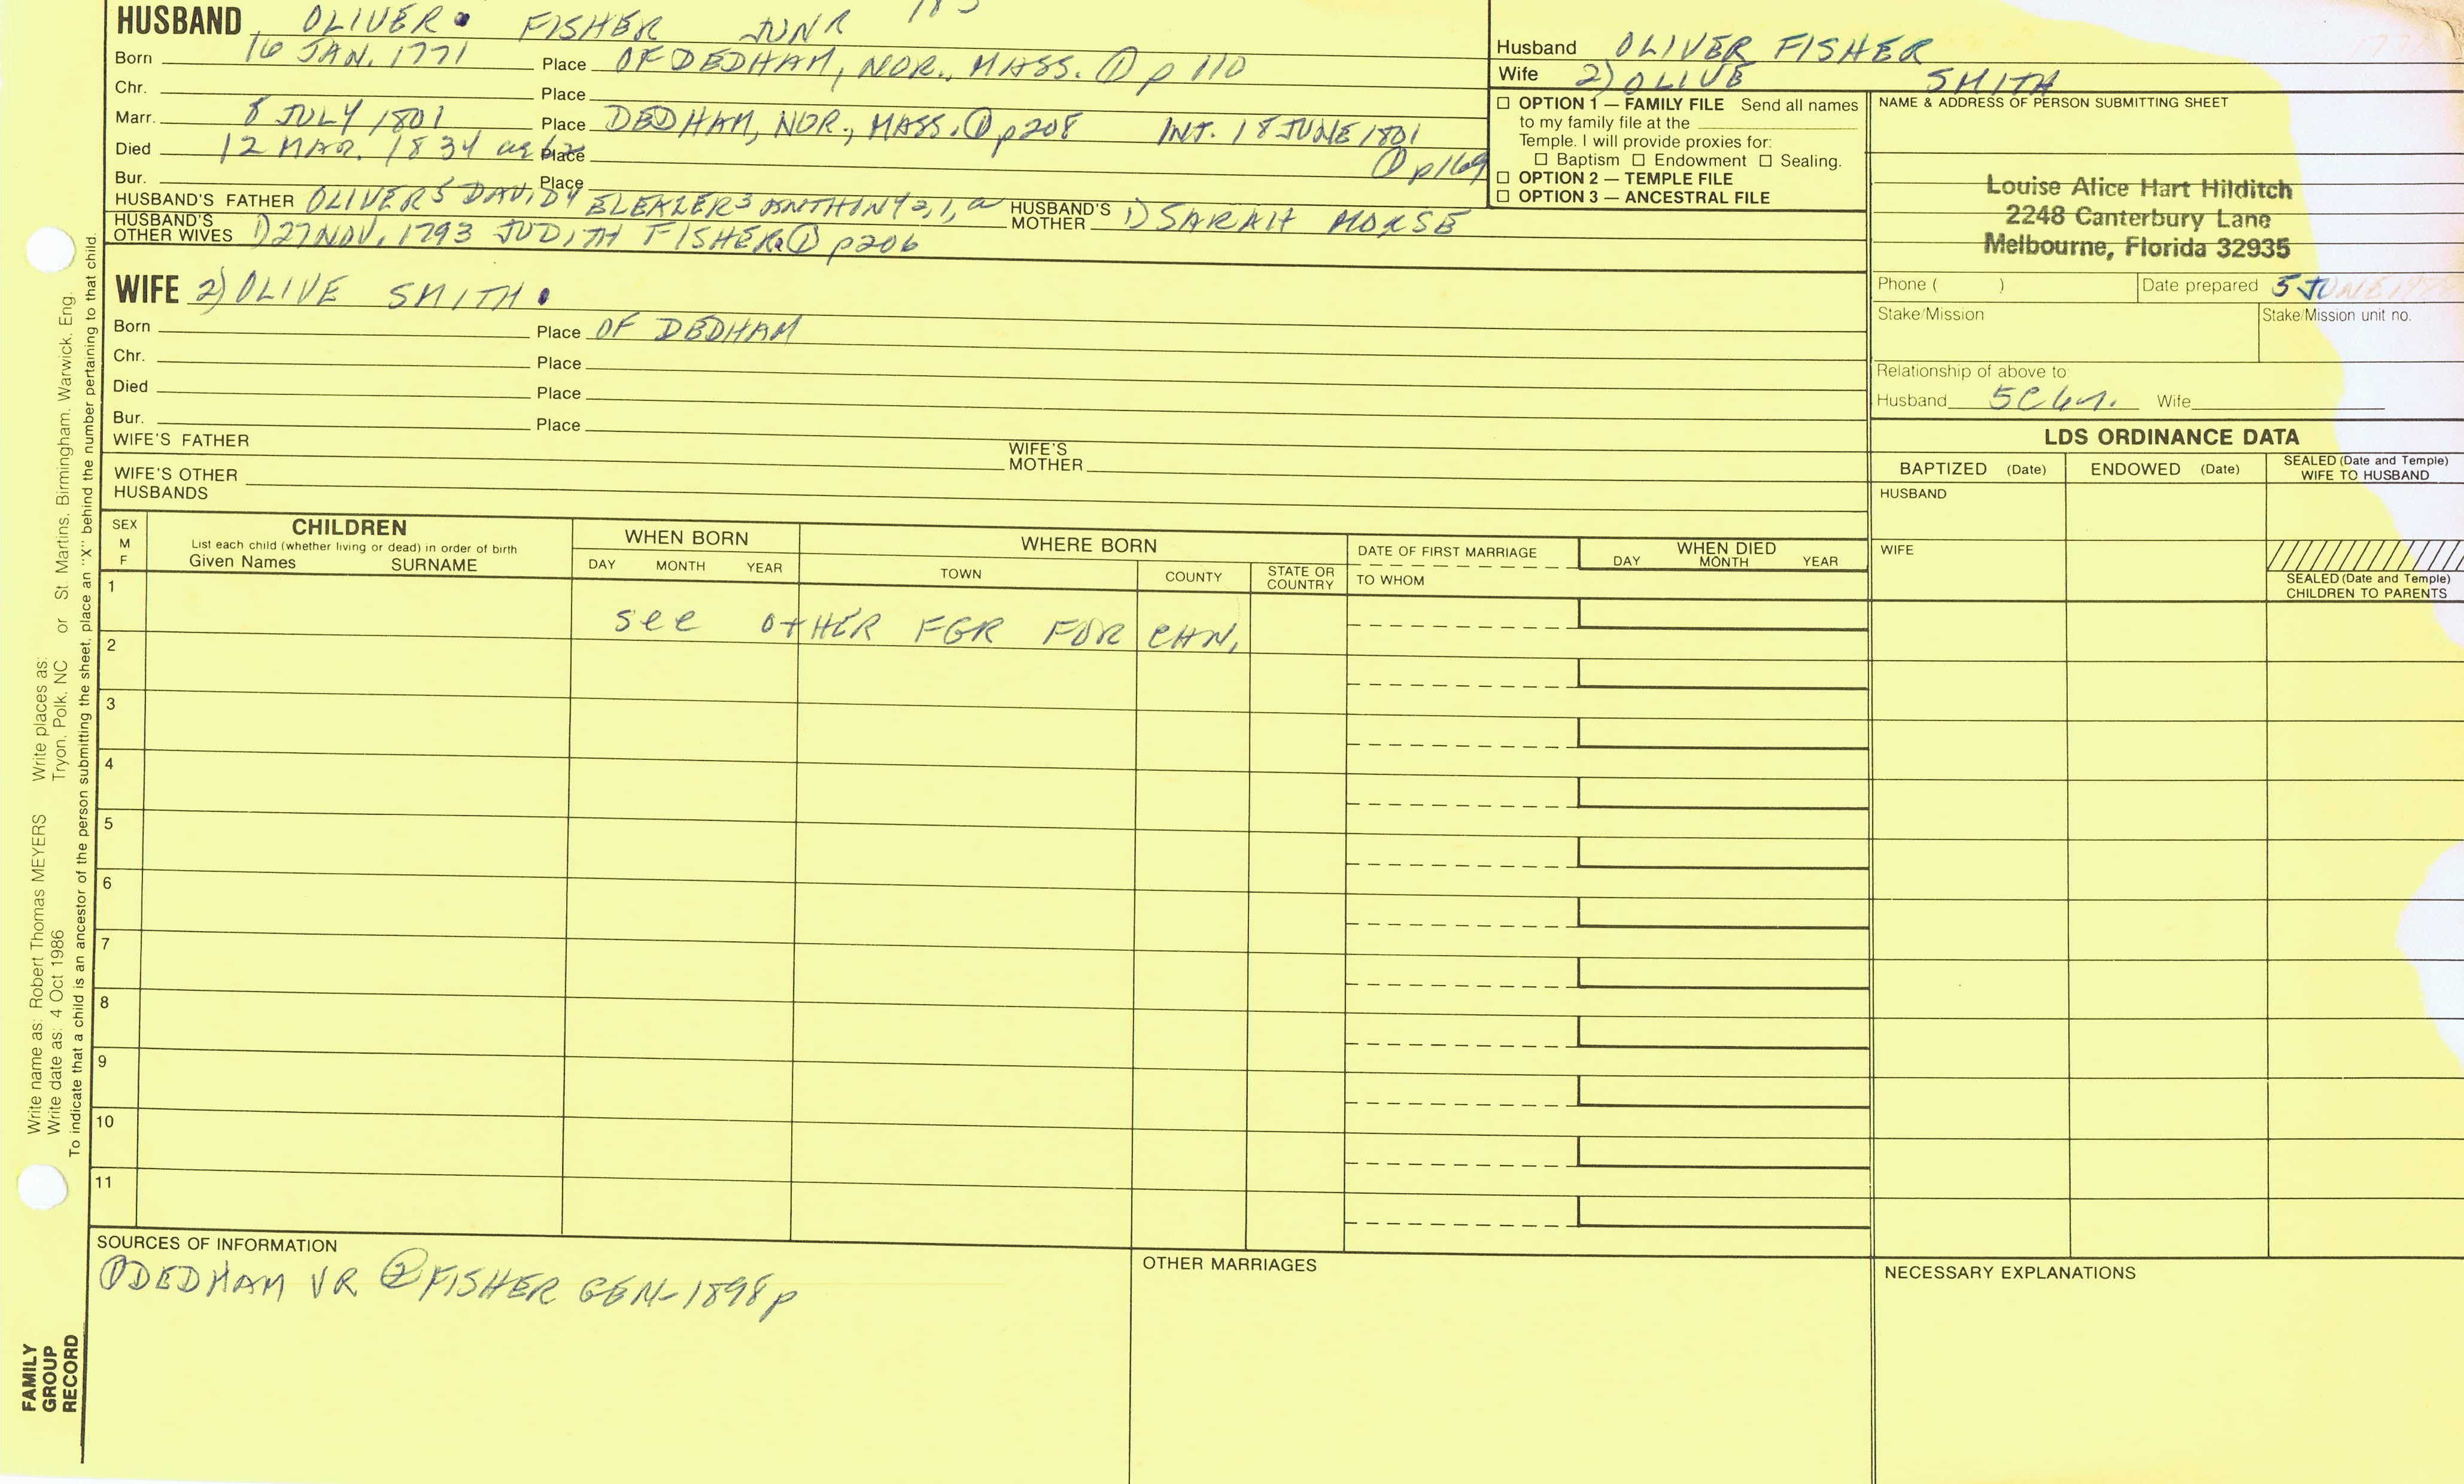 HUSBAND OLIVER FISHER JUNR
Born 16 JAN. 1771 Place OF DEDHAM, NOR., MASS. ① p 110
Chr. Place
Marr. 8 JULY 1801 Place DEDHAM, NOR., MASS. ① p208 INT. 18 JUNE 1801
Died 12 MAR. 1834 ae 63 Place ① p169
Bur. Place
HUSBAND'S FATHER OLIVER5 DAVID4 ELEAZER3 ANTHINY2,1,a HUSBAND'S MOTHER 1) SARAH MORSE
HUSBAND'S OTHER WIVES 1) 27 NOV. 1793 JUDITH FISHER ① p206
WIFE 2) OLIVE SMITH
Born Place OF DEDHAM
Chr. Place
Died Place
Bur. Place
WIFE'S FATHER WIFE'S MOTHER
WIFE'S OTHER HUSBANDS
Husband OLIVER FISHER
Wife 2) OLIVE SMITH
☐ OPTION 1 — FAMILY FILE Send all names
to my family file at the
Temple. I will provide proxies for:
☐ Baptism ☐ Endowment ☐ Sealing.
☐ OPTION 2 — TEMPLE FILE
☐ OPTION 3 — ANCESTRAL FILE
NAME & ADDRESS OF PERSON SUBMITTING SHEET
Louise Alice Hart Hilditch
2248 Canterbury Lane
Melbourne, Florida 32935
Phone ( ) Date prepared 5 JUNE
Stake/Mission Stake/Mission unit no.
Relationship of above to:
Husband 5C Wife
LDS ORDINANCE DATA
BAPTIZED (Date) ENDOWED (Date) SEALED (Date and Temple) WIFE TO HUSBAND
HUSBAND
WIFE
SEALED (Date and Temple)
CHILDREN TO PARENTS
SEX M F
CHILDREN
List each child (whether living or dead) in order of birth
Given Names SURNAME
WHEN BORN
DAY MONTH YEAR
WHERE BORN
TOWN COUNTY STATE OR COUNTRY
DATE OF FIRST MARRIAGE
TO WHOM
WHEN DIED
DAY MONTH YEAR
1
see OtHER FGR FOR CHN.
2
3
4
5
6
7
8
9
10
11
SOURCES OF INFORMATION
① DEDHAM VR ② FISHER GEN-1898 p
OTHER MARRIAGES
NECESSARY EXPLANATIONS
Write name as: Robert Thomas MEYERS Write places as: or St. Martins, Birmingham, Warwick, Eng.
Write date as: 4 Oct 1986 Tryon, Polk, NC
To indicate that a child is an ancestor of the person submitting the sheet, place an "X" behind the number pertaining to that child.
FAMILY
GROUP
RECORD